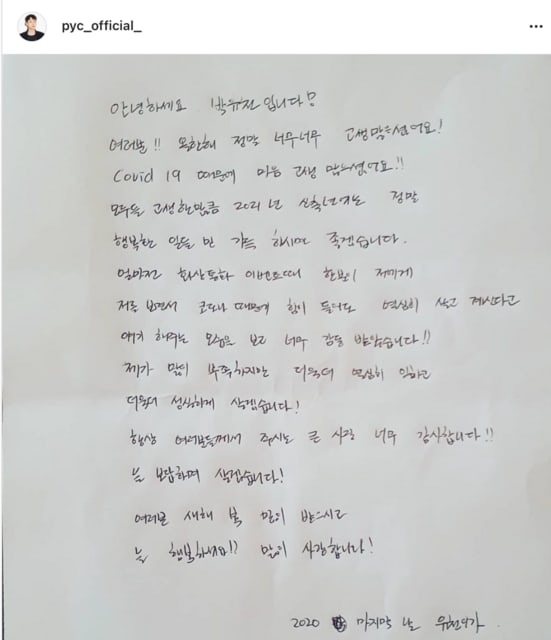 pyc_official_
안녕하세요 박유천입니다!
여러분!! 올한해 정말 너무너무 고생많으셨어요!
Covid 19 때문에 마음 고생 많으셨어요!!
모두들 고생한만큼 2021년 신축년에는 정말
행복한 일들만 가득 하시면 좋겠습니다.
얼마전 화상통화 이벤트때 한분이 저에게
저를 보면서 코로나 때문에 힘이 들어도 열심히 살고 계신다고
얘기 해주는 모습을 보고 너무 감동 받았습니다!!
제가 많이 부족하지만 더욱더 열심히 일하고
더욱더 성실하게 살겠습니다!
항상 여러분들께서 주시는 큰 사랑 너무 감사합니다!!
늘 보답하며 살겠습니다!
여러분 새해 복 많이 받으시고
늘 행복하세요!? 많이 사랑합니다!
2020 마지막 날 유천이가.